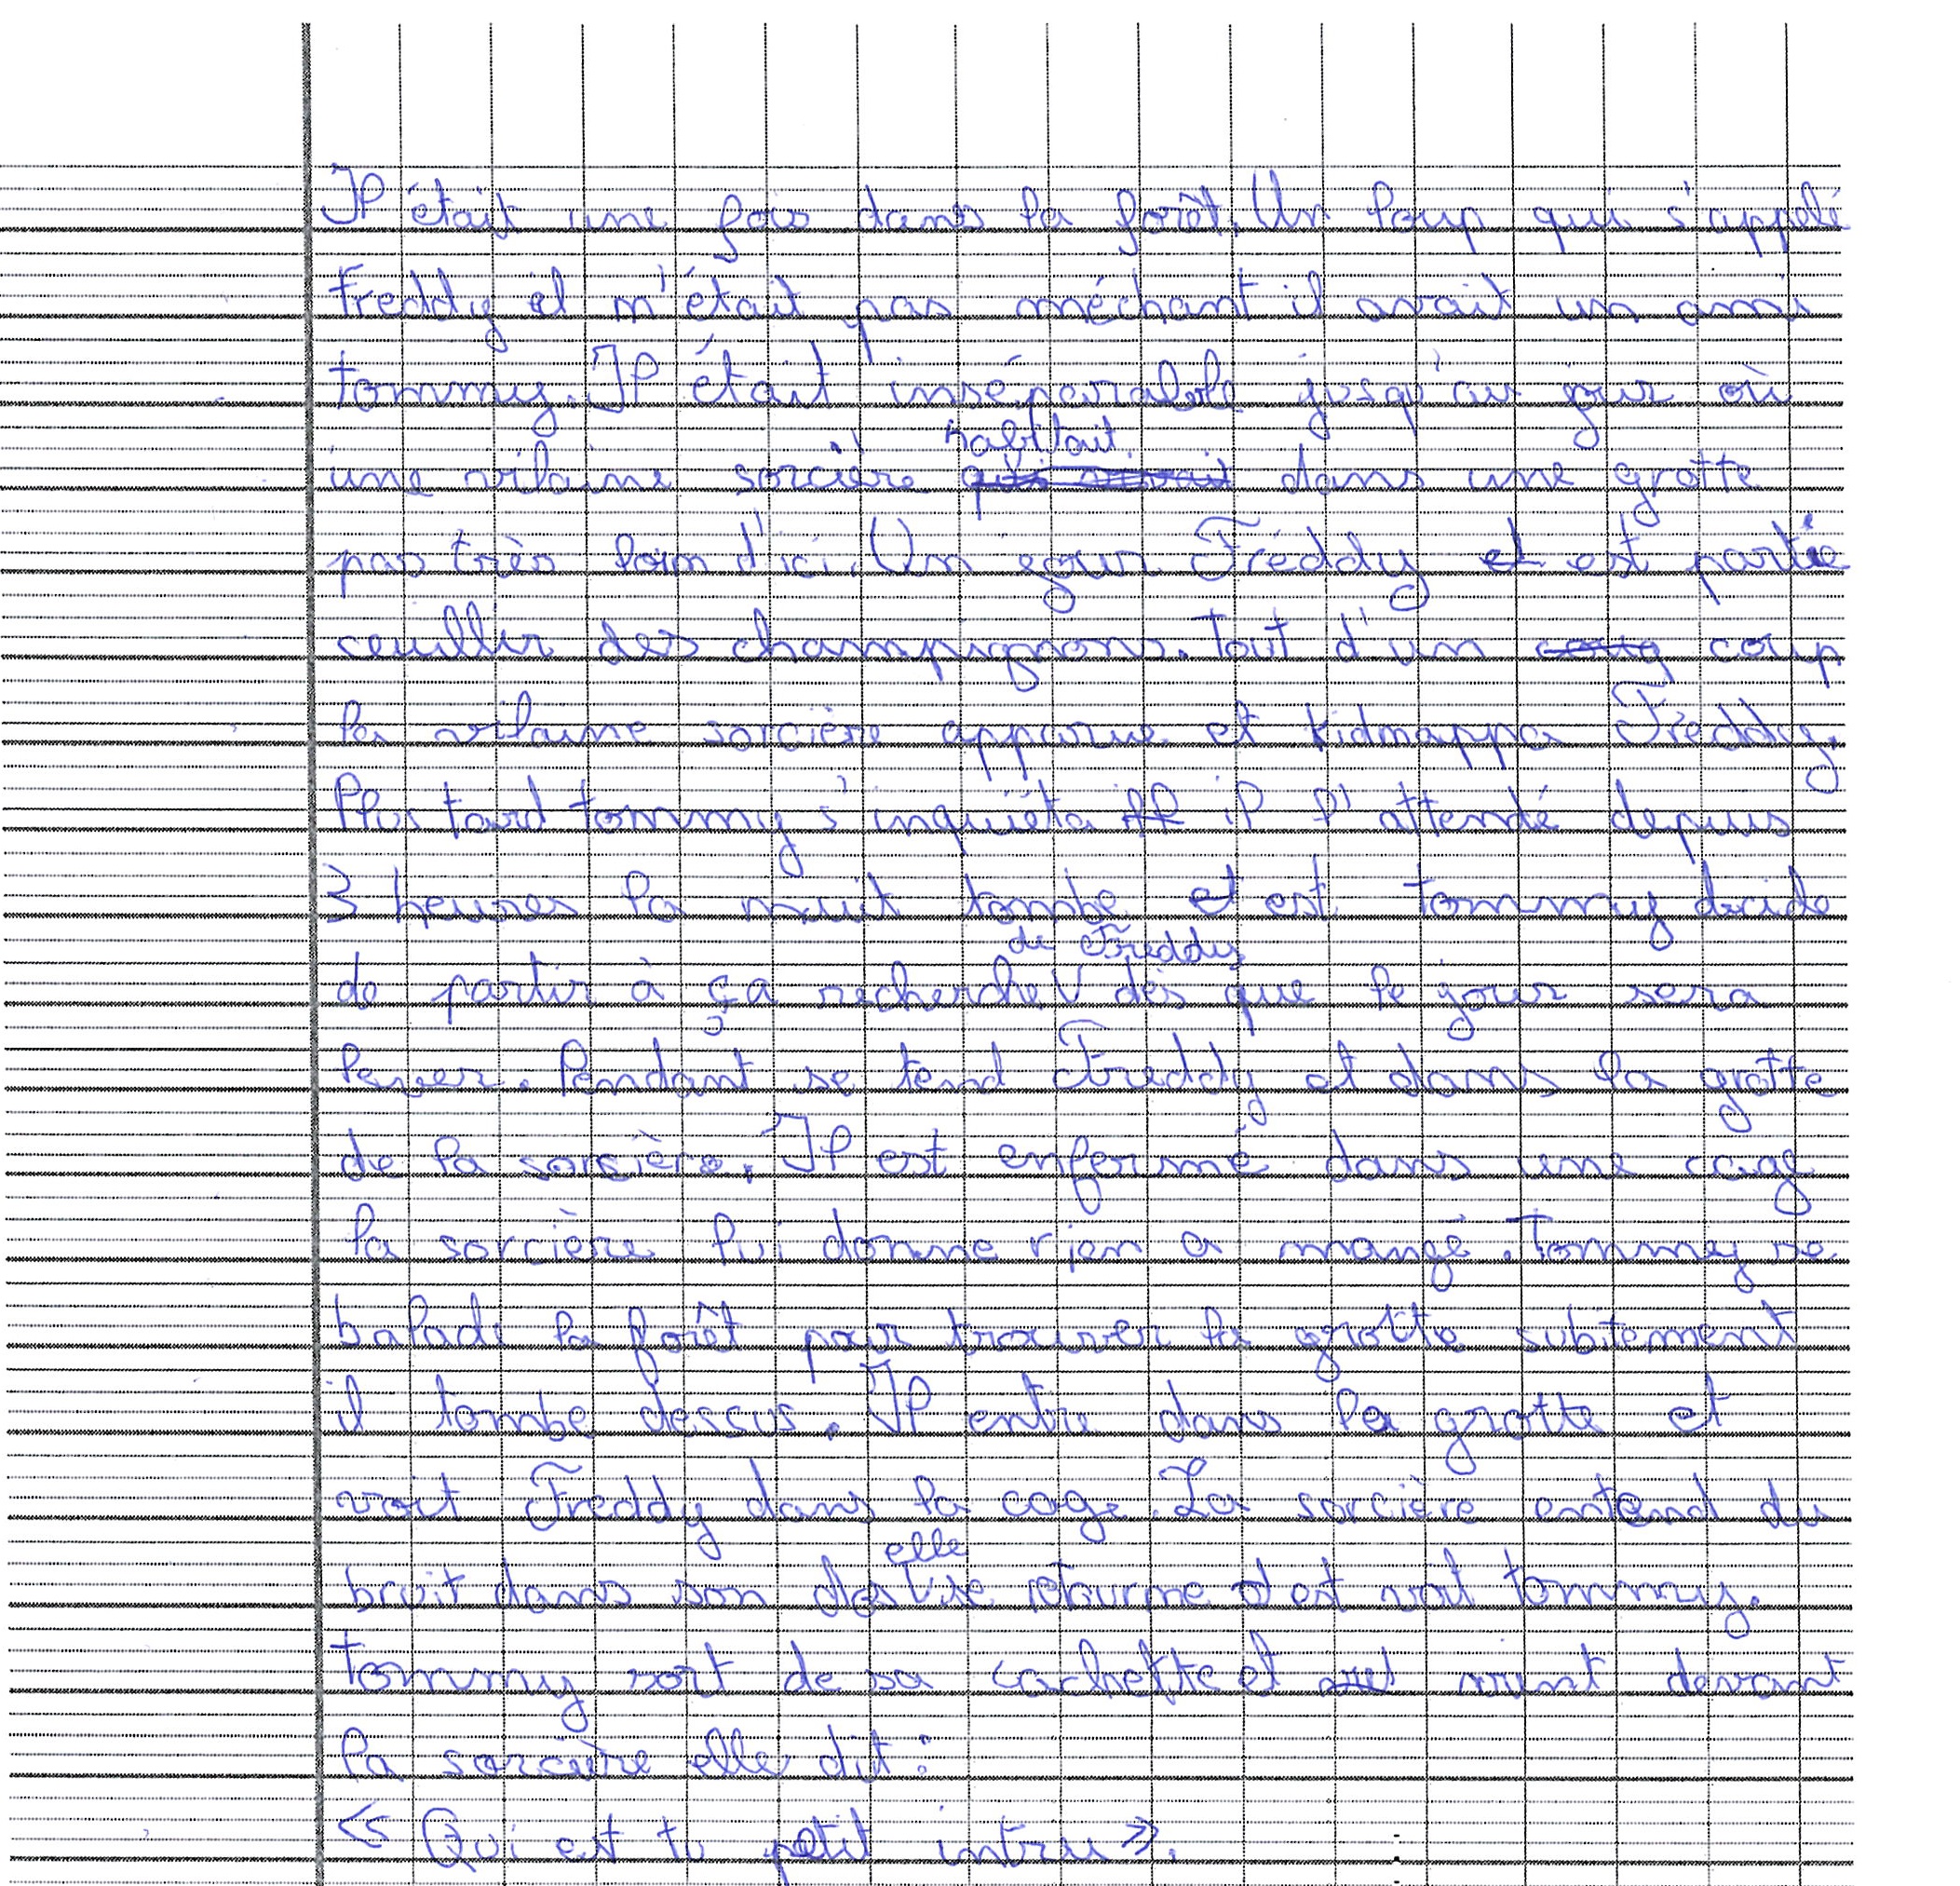 Il était une fois dans la forêt. Un loup qui s'appelé
Freddy il n'était pas méchant il avait un ami
tommy. Il était inséparable jusqu'au jour où
une vilaine sorcière habitait dans une grotte
pas très loin d'ici. Un jour Freddy est partie
ceuillir des champignons. Tout d'un coup
la vilaine sorcière apparue et kidnappa Freddy.
Plus tard tommy s'inquiéta il l'attendé depuis
3 heures la nuit tombe est tommy decide
de partir à ça recherche de Freddy dès que le jour sera
lever. Pendant se tend Freddy et dans la grotte
de la sorsière. Il est enfermé dans une cage
la sorcière lui donne rien a mangé. Tommy se
balade la forêt pour trouver la grotte subitement
il tombe dessus. Il entre dans la grotte et
voit Freddy dans la cage. La sorcière entend du
bruit dans son dos elle se retourne est voit tommy.
tommy sort de sa cachette et vient devant
la sorcière elle dit :
« Qui est tu petit intru ».